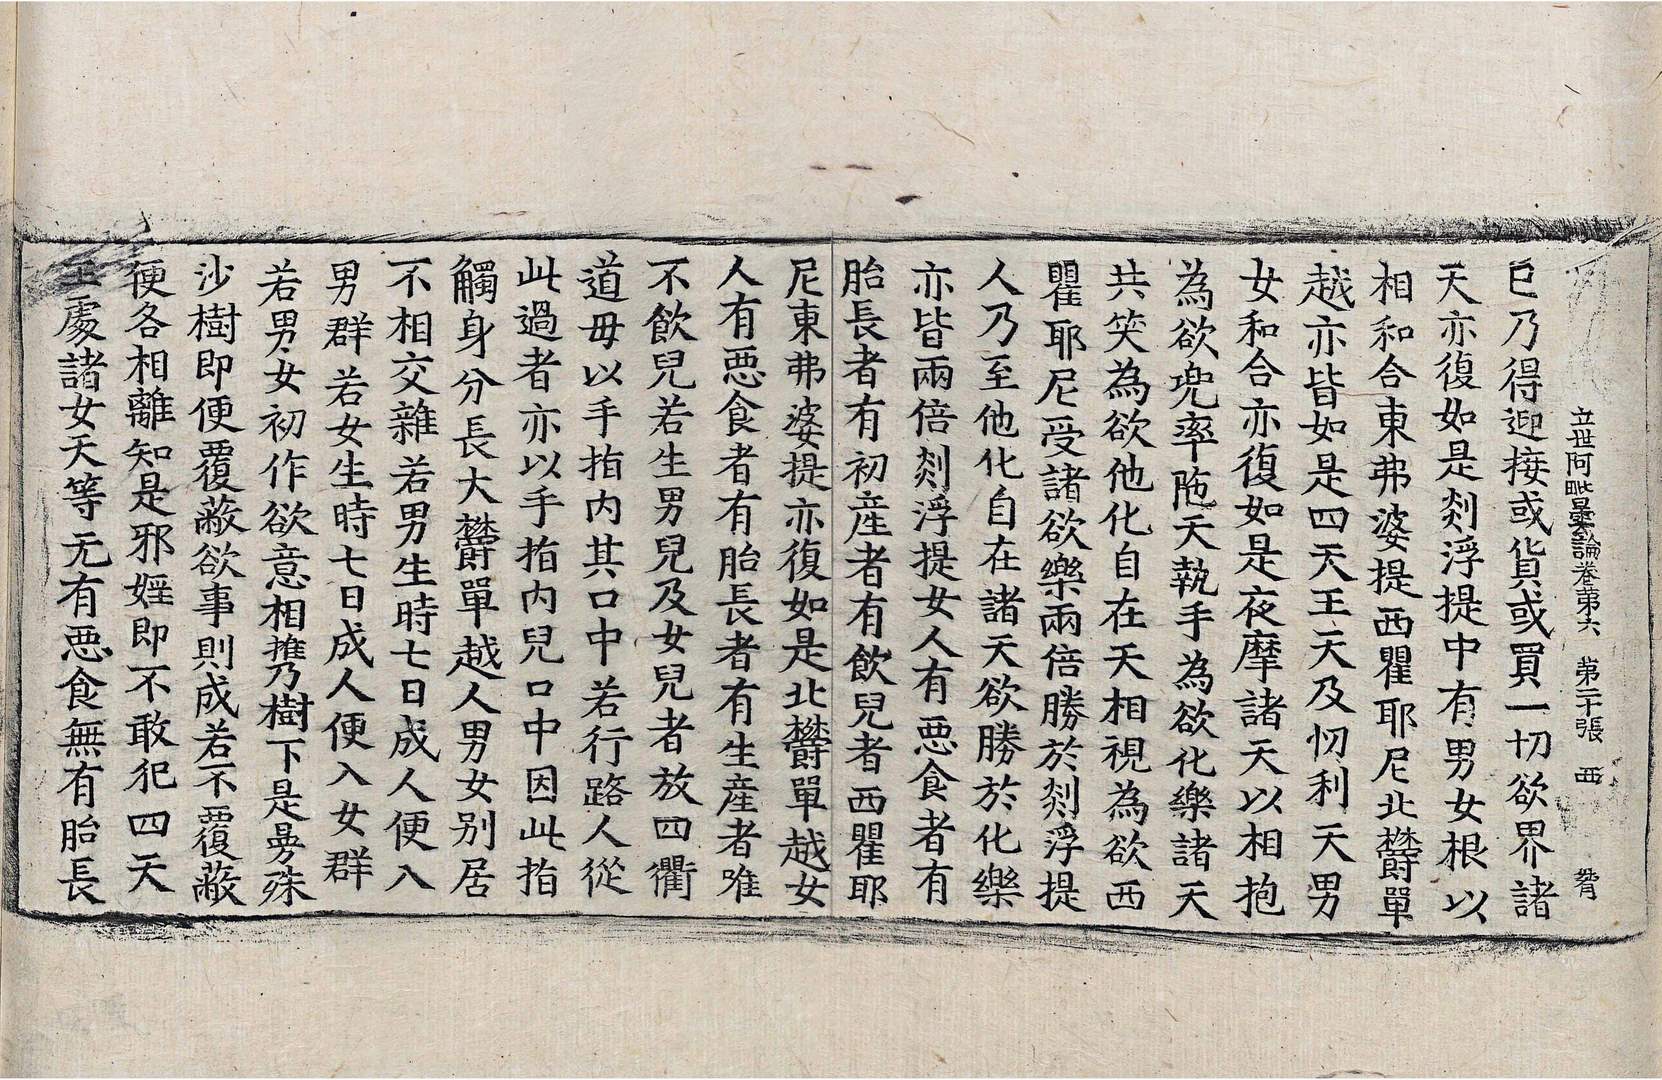 立世阿毗曇論卷第六　第二十張　西
已乃得迎接或貨或買一切欲界諸
天亦復如是剡浮提中有男女根以
相和合東弗婆提西瞿耶尼北欝單
越亦皆如是四天王天及忉利天男
女和合亦復如是夜摩諸天以相抱
為欲兜率陁天執手為欲化樂諸天
共笑為欲他化自在天相視為欲西
瞿耶尼受諸欲樂兩倍勝於剡浮提
人乃至他化自在諸天欲勝於化樂
亦皆兩倍剡浮提女人有惡食者有
胎長者有初產者有飲兒者西瞿耶
尼東弗婆提亦復如是北欝單越女
人有惡食者有胎長者有生產者唯
不飲兒若生男兒及女兒者放四衢
道毋以手指內其口中若行路人從
此過者亦以手指內兒口中因此指
觸身分長大欝單越人男女別居
不相交雜若男生時七日成人便入
男群若女生時七日成人便入女群
若男女初作欲意相携乃樹下是曼殊
沙樹即便覆蔽欲事則成若不覆蔽
便各相離知是邪婬即不敢犯四天
王處諸女天等无有惡食無有胎長